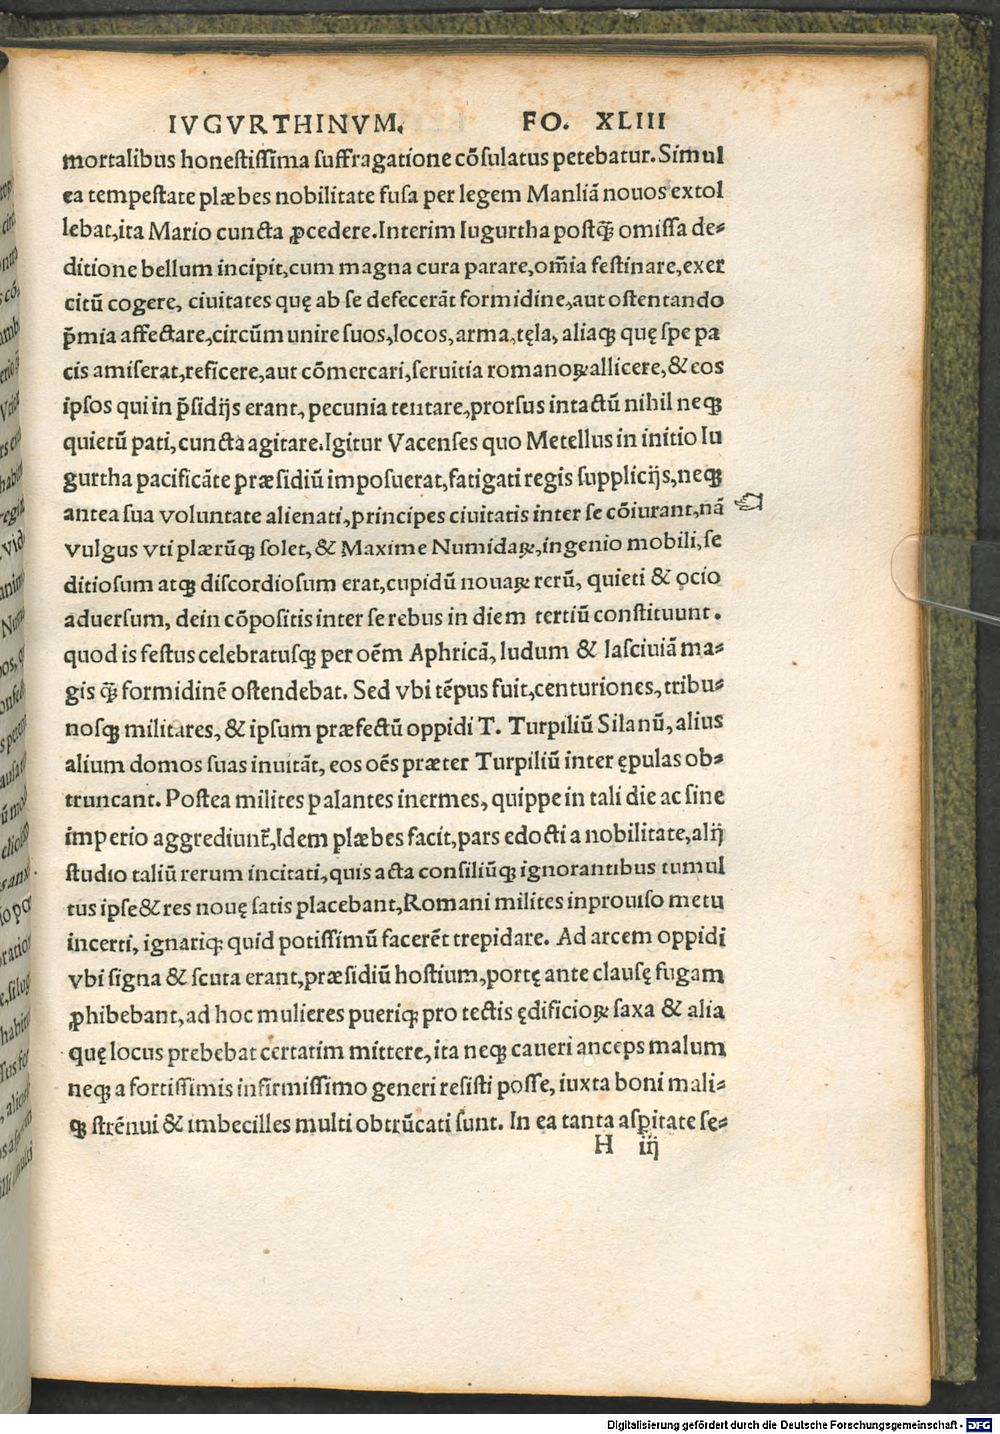 IVGVRTHINVM. FO. XLIII
mortalibus honestissima suffragatione cõsulatus petebatur. Simul
ea tempestate plæbes nobilitate fusa per legem Manliã nouos extol
lebat, ita Mario cuncta ꝓcedere. Interim Iugurtha postq̃ omissa de⸗
ditione bellum incipit, cum magna cura parare, om̃ia festinare, exer
citũ cogere, ciuitates quę ab se defecerãt formidine, aut ostentando
p̃mia affectare, circũmunire suos, locos, arma, tęla, aliaqꝫ quę spe pa
cis amiserat, reficere, aut cõmercari, seruitia romanoꝝ allicere, & eos
ipsos qui in p̃sidijs erant, pecunia tentare, prorsus intactũ nihil neqꝫ
quietũ pati, cuncta agitare. Igitur Vacenses quo Metellus in initio Iu
gurtha pacificãte præsidiũ imposuerat, fatigati regis supplicijs, neqꝫ
antea sua voluntate alienati, principes ciuitatis inter se cõiurant, nã
vulgus vti plærũqꝫ solet, & Maxime Numidaꝝ, ingenio mobili, se
ditiosum atqꝫ discordiosum erat, cupidũ nouaꝝ rerũ, quieti & ocio
aduersum, dein cõpositis inter se rebus in diem tertiũ constituunt.
quod is festus celebratusqꝫ per oẽm Aphricã, ludum & lasciuiã ma⸗
gis q̃ formidinẽ ostendebat. Sed vbi tẽpus fuit, centuriones, tribu⸗
nosqꝫ militares, & ipsum præfectũ oppidi T. Turpiliũ Silanũ, alius
alium domos suas inuitãt, eos oẽs præter Turpiliũ inter ępulas ob⸗
truncant. Postea milites palantes inermes, quippe in tali die ac sine
imperio aggrediunt̃, Idem plæbes facit, pars edocti a nobilitate, alij
studio taliũ rerum incitati, quis acta consiliũqꝫ ignorantibus tumul
tus ipse & res nouę satis placebant, Romani milites inprouiso metu
incerti, ignariqꝫ quid potissimũ facerẽt trepidare. Ad arcem oppidi
vbi signa & scuta erant, præsidiũ hostium, portę ante clausę fugam
ꝓhibebant, ad hoc mulieres pueriqꝫ pro tectis ędificioꝝ saxa & alia
quę locus prebebat certatim mittere, ita neqꝫ caueri anceps malum
neqꝫ a fortissimis infirmissimo generi resisti posse, iuxta boni mali⸗
qꝫ strẽnui & imbecilles multi obtrũcati sunt. In ea tanta asꝑitate se⸗
H iij
Digitalisierung gefördert durch die Deutsche Forschungsgemeinschaft - DFG